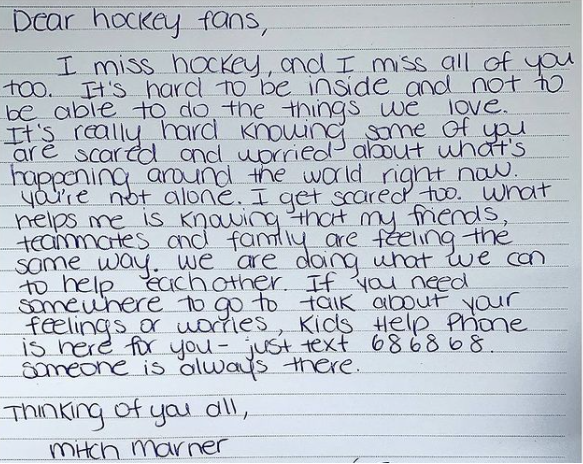 Dear hockey fans,
I miss hockey, and I miss all of you
too. It's hard to be inside and not to
be able to do the things we love.
It's really hard knowing some of you
are scared and worried about what's
happening around the world right now.
you're not alone. I get scared too. What
helps me is knowing that my friends,
teammates and family are feeling the
same way. We are doing what we can
to help eachother. If you need
somewhere to go to talk about your
feelings or worries, Kids Help Phone
is here for you - just text 686868.
Someone is always there.
Thinking of you all,
mitch marner